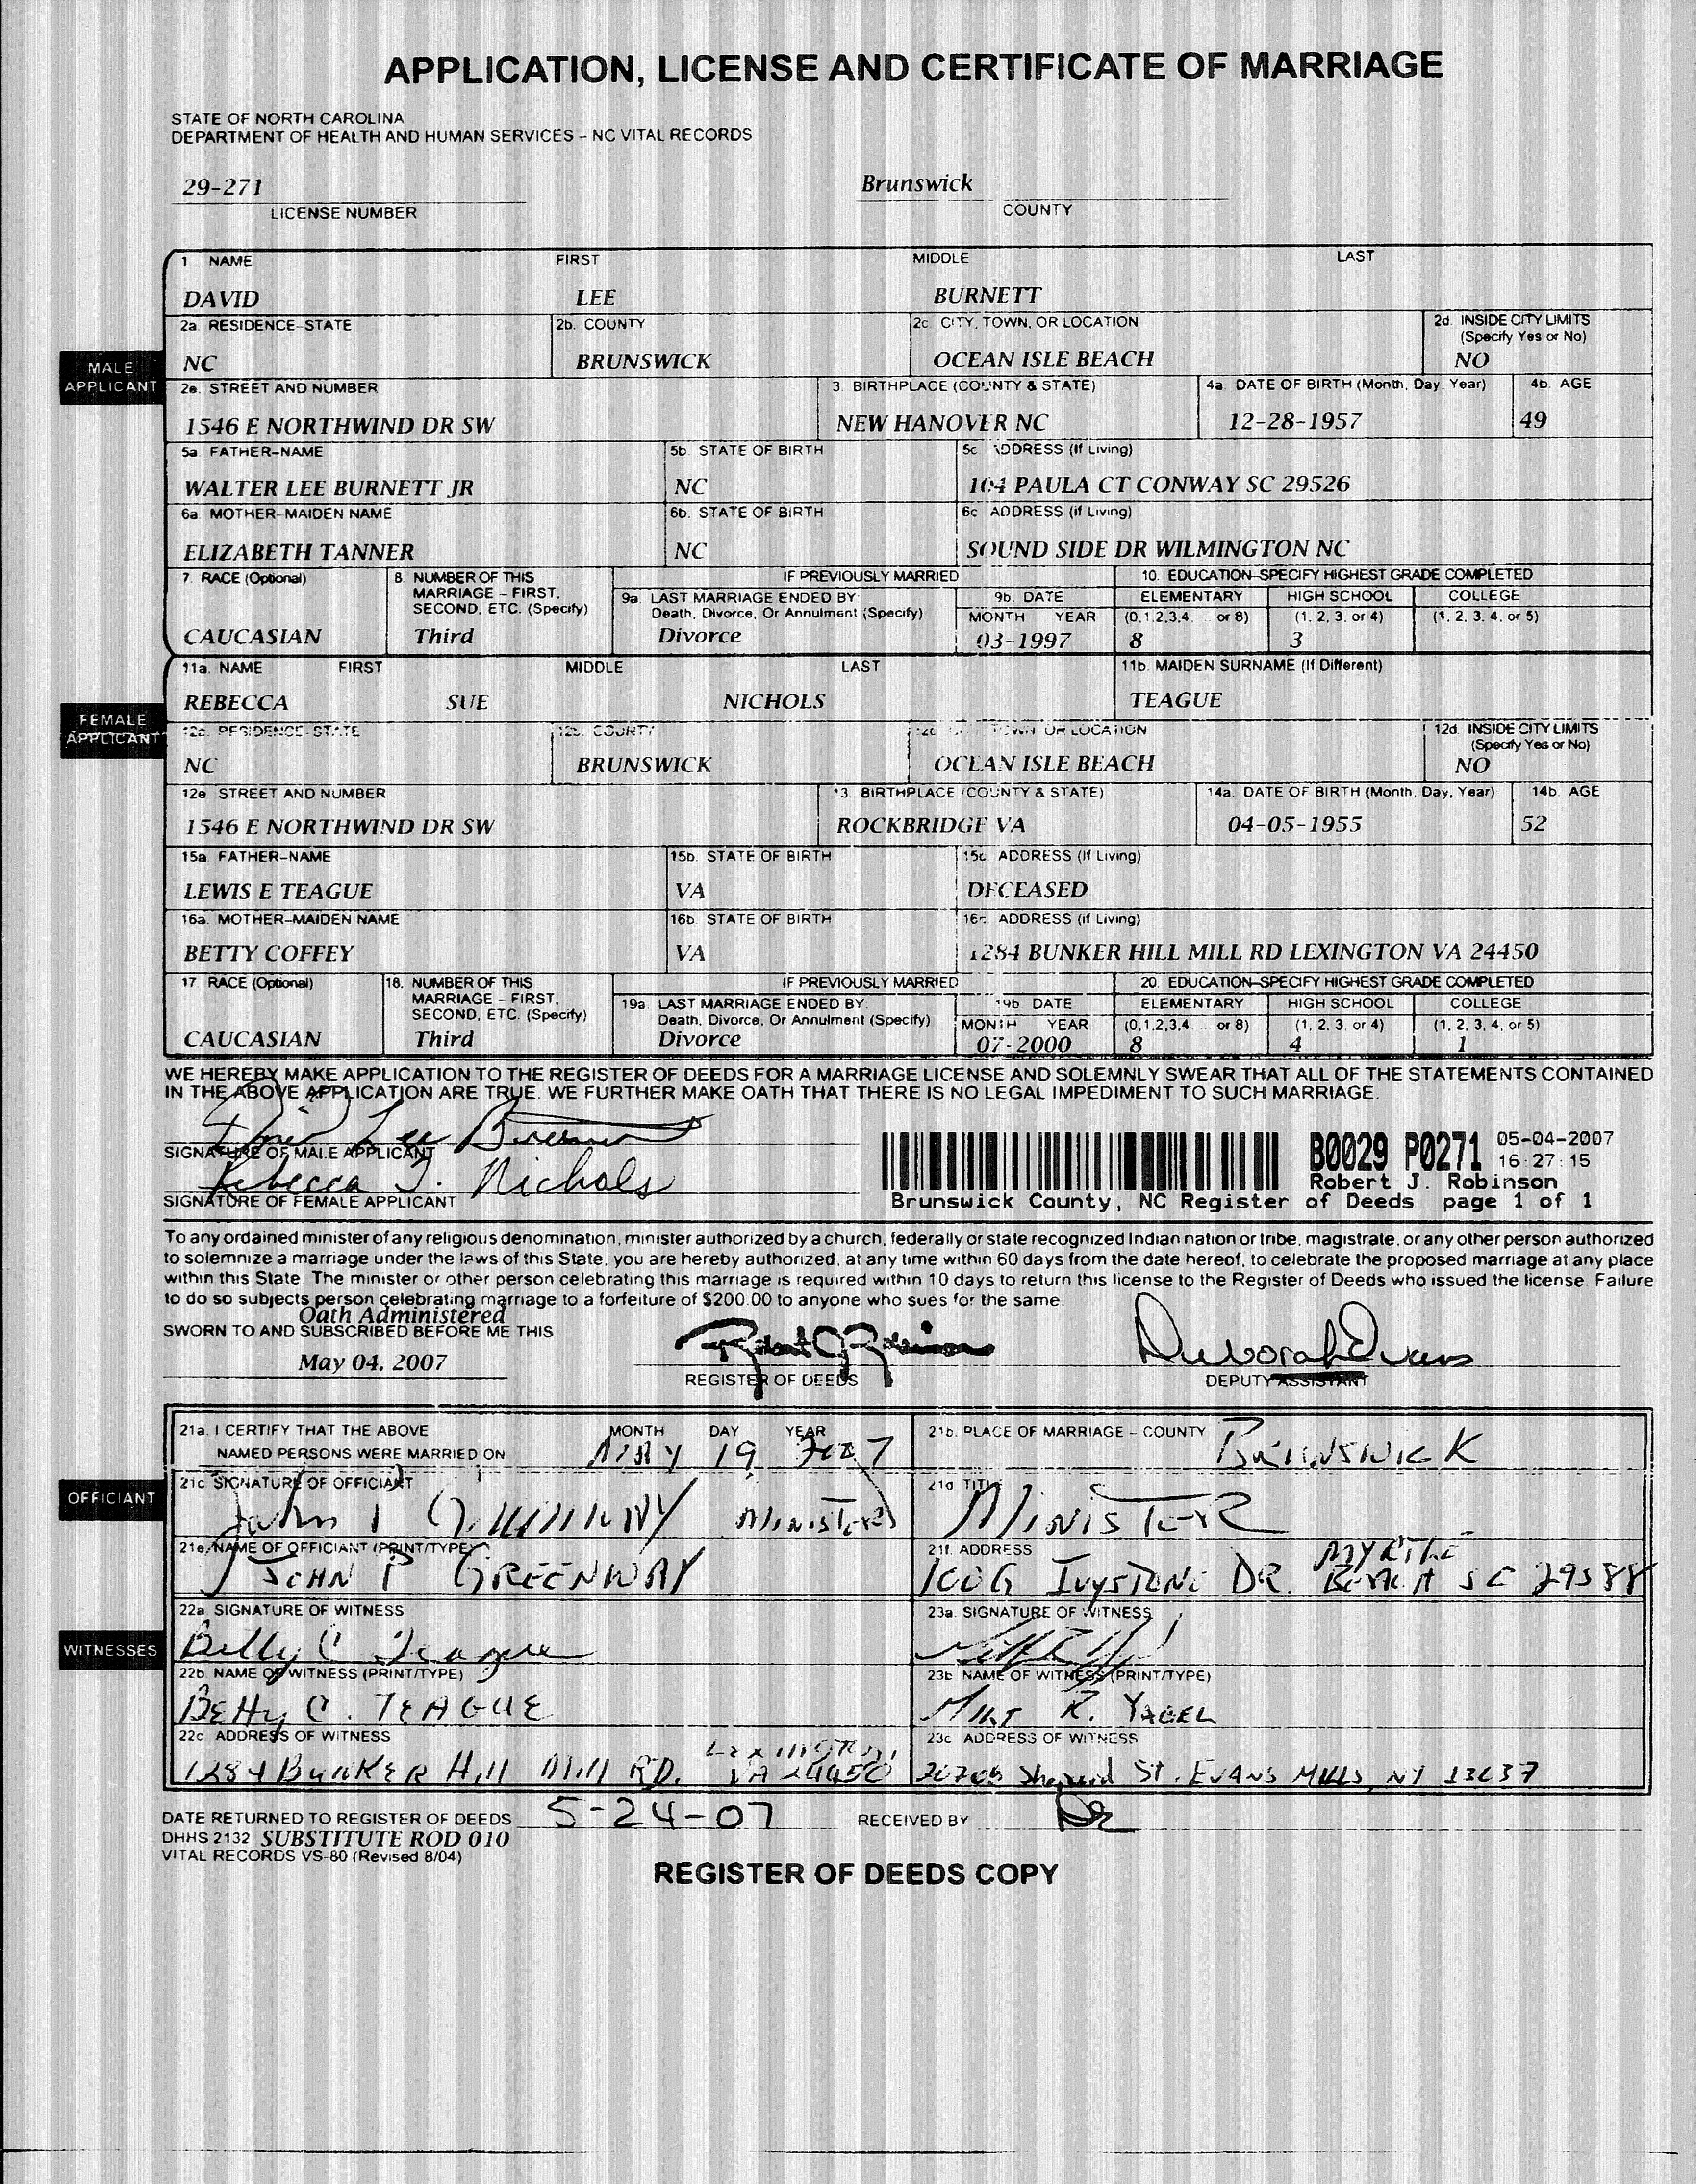 APPLICATION, LICENSE AND CERTIFICATE OF MARRIAGE
STATE OF NORTH CAROLINA
DEPARTMENT OF HEALTH AND HUMAN SERVICES – NC VITAL RECORDS
29-271 Brunswick
LICENSE NUMBER COUNTY
1 NAME FIRST MIDDLE LAST
DAVID LEE BURNETT
2a. RESIDENCE–STATE 2b. COUNTY 2c. CITY, TOWN, OR LOCATION 2d. INSIDE CITY LIMITS
(Specify Yes or No)
MALE APPLICANT
NC BRUNSWICK OCEAN ISLE BEACH NO
2e. STREET AND NUMBER 3. BIRTHPLACE (COUNTY & STATE) 4a. DATE OF BIRTH (Month, Day, Year) 4b. AGE
1546 E NORTHWIND DR SW NEW HANOVER NC 12-28-1957 49
5a. FATHER–NAME 5b. STATE OF BIRTH 5c. ADDRESS (If Living)
WALTER LEE BURNETT JR NC 104 PAULA CT CONWAY SC 29526
6a. MOTHER–MAIDEN NAME 6b. STATE OF BIRTH 6c ADDRESS (if Living)
ELIZABETH TANNER NC SOUND SIDE DR WILMINGTON NC
7. RACE (Optional) 8. NUMBER OF THIS MARRIAGE – FIRST, SECOND, ETC. (Specify) IF PREVIOUSLY MARRIED 10. EDUCATION–SPECIFY HIGHEST GRADE COMPLETED
9a. LAST MARRIAGE ENDED BY: Death, Divorce, Or Annulment (Specify) 9b. DATE ELEMENTARY HIGH SCHOOL COLLEGE
MONTH YEAR (0,1,2,3,4, ... or 8) (1, 2, 3, or 4) (1, 2, 3, 4, or 5)
CAUCASIAN Third Divorce 03-1997 8 3
11a. NAME FIRST MIDDLE LAST 11b. MAIDEN SURNAME (If Different)
REBECCA SUE NICHOLS TEAGUE
FEMALE APPLICANT
12a. RESIDENCE–STATE 12b. COUNTY 12c. CITY, TOWN, OR LOCATION 12d. INSIDE CITY LIMITS
(Specify Yes or No)
NC BRUNSWICK OCEAN ISLE BEACH NO
12e STREET AND NUMBER 13. BIRTHPLACE (COUNTY & STATE) 14a. DATE OF BIRTH (Month, Day, Year) 14b. AGE
1546 E NORTHWIND DR SW ROCKBRIDGE VA 04-05-1955 52
15a. FATHER–NAME 15b. STATE OF BIRTH 15c. ADDRESS (If Living)
LEWIS E TEAGUE VA DECEASED
16a. MOTHER–MAIDEN NAME 16b. STATE OF BIRTH 16c. ADDRESS (if Living)
BETTY COFFEY VA 1284 BUNKER HILL MILL RD LEXINGTON VA 24450
17. RACE (Optional) 18. NUMBER OF THIS MARRIAGE – FIRST, SECOND, ETC. (Specify) IF PREVIOUSLY MARRIED 20. EDUCATION–SPECIFY HIGHEST GRADE COMPLETED
19a. LAST MARRIAGE ENDED BY: Death, Divorce, Or Annulment (Specify) 19b. DATE ELEMENTARY HIGH SCHOOL COLLEGE
MONTH YEAR (0,1,2,3,4, ... or 8) (1, 2, 3, or 4) (1, 2, 3, 4, or 5)
CAUCASIAN Third Divorce 07-2000 8 4 1
WE HEREBY MAKE APPLICATION TO THE REGISTER OF DEEDS FOR A MARRIAGE LICENSE AND SOLEMNLY SWEAR THAT ALL OF THE STATEMENTS CONTAINED
IN THE ABOVE APPLICATION ARE TRUE. WE FURTHER MAKE OATH THAT THERE IS NO LEGAL IMPEDIMENT TO SUCH MARRIAGE.
David Lee Burnett
SIGNATURE OF MALE APPLICANT
Rebecca T. Nichols
SIGNATURE OF FEMALE APPLICANT
B0029 P0271 05-04-2007
16:27:15
Robert J. Robinson
Brunswick County, NC Register of Deeds page 1 of 1
To any ordained minister of any religious denomination, minister authorized by a church, federally or state recognized Indian nation or tribe, magistrate, or any other person authorized
to solemnize a marriage under the laws of this State, you are hereby authorized, at any time within 60 days from the date hereof, to celebrate the proposed marriage at any place
within this State. The minister or other person celebrating this marriage is required within 10 days to return this license to the Register of Deeds who issued the license. Failure
to do so subjects person celebrating marriage to a forfeiture of $200.00 to anyone who sues for the same.
Oath Administered
SWORN TO AND SUBSCRIBED BEFORE ME THIS
May 04, 2007 Robert J. Robinson Deborah Evans
REGISTER OF DEEDS DEPUTY ASSISTANT
21a. I CERTIFY THAT THE ABOVE MONTH DAY YEAR 21b. PLACE OF MARRIAGE – COUNTY
NAMED PERSONS WERE MARRIED ON MAY 19 2007 BRUNSWICK
OFFICIANT
21c SIGNATURE OF OFFICIANT 21d TITLE
John P Greenway MINISTER MINISTER
21e. NAME OF OFFICIANT (PRINT/TYPE) 21f. ADDRESS
JOHN P GREENWAY IVYSTONE DR. MYRTLE BEACH SC 29588
WITNESSES
22a. SIGNATURE OF WITNESS 23a. SIGNATURE OF WITNESS
Betty C Teague
22b. NAME OF WITNESS (PRINT/TYPE) 23b NAME OF WITNESS (PRINT/TYPE)
BETTY C. TEAGUE R. YAGEL
22c ADDRESS OF WITNESS 23c ADDRESS OF WITNESS
1284 BUNKER Hill Mill RD. Lexington, VA 24450 St. EVANS MILLS, NY 13637
DATE RETURNED TO REGISTER OF DEEDS 5-24-07 RECEIVED BY DE
DHHS 2132 SUBSTITUTE ROD 010
VITAL RECORDS VS-80 (Revised 8/04)
REGISTER OF DEEDS COPY